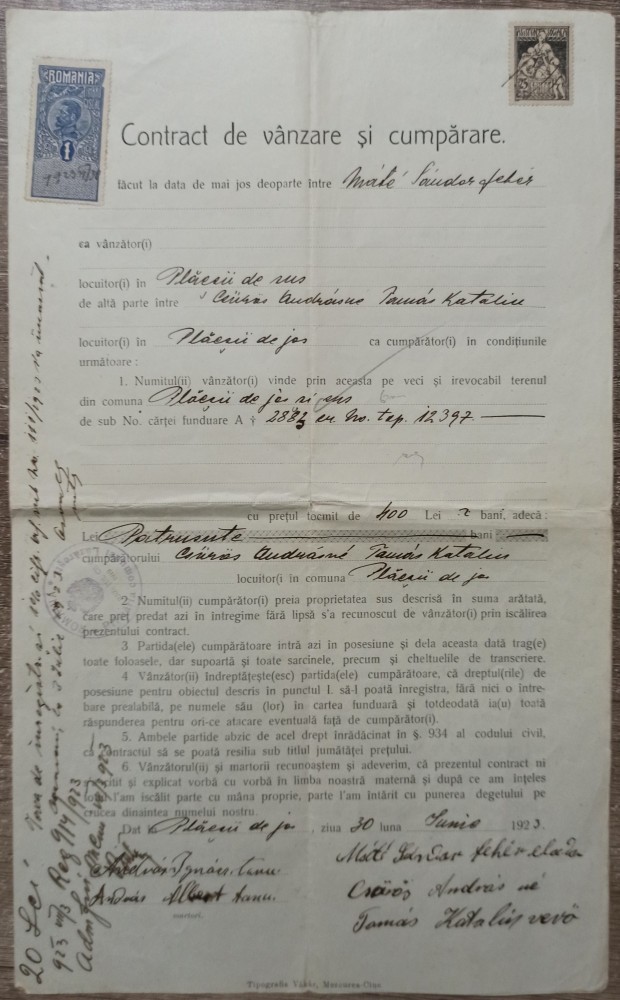 ROMANIA
1
Contract de vânzare și cumpărare.
făcut la data de mai jos deoparte între Máté Sándor fehér
ca vânzător(i)
locuitor(i) în Plăeșii de sus
de altă parte între Csürös Andrásne Tamás Katalin
locuitor(i) în Plăeșii de jos ca cumpărător(i) în condițiunile
următoare :
1. Numitul(ii) vânzător(i) vinde prin aceasta pe veci și irevocabil terenul
din comuna Plăeșii de jos si sus
de sub No. cărței funduare A † cu No. top. 12397
cu prețul tocmit de 400 Lei bani, adecă:
Lei Patrusute bani
cumpărătorului Csürös Andrásné Tamás Katalin
locuitor(i) în comuna Plăeșii de jos
2. Numitul(ii) cumpărător(i) preia proprietatea sus descrisă în suma arătată,
care preț predat azi în întregime fără lipsă s'a recunoscut de vânzător(i) prin iscălirea
prezentului contract.
3 Partida(ele) cumpărătoare intră azi în posesiune și dela aceasta dată trag(e)
toate foloasele, dar supoartă și toate sarcinele, precum și cheltuelile de transcriere.
4 Vânzător(ii) îndreptățește(esc) partida(ele) cumpărătoare, că dreptul(rile) de
posesiune pentru obiectul descris în punctul 1. să-l poată înregistra, fără nici o între-
bare prealabilă, pe numele său (lor) în cartea funduară și totdeodată ia(u) toată
răspunderea pentru ori-ce atacare eventuală față de cumpărător(i).
5. Ambele partide abzic de acel drept înrădăcinat în §. 934 al codului civil,
că contractul să se poată resilia sub titlul jumătăței prețului.
6. Vânzătorul(ii) și martorii recunoaștem și adeverim, că prezentul contract ni
s'a citit și explicat vorbă cu vorbă în limba noastră maternă și după ce am înțeles
l'am iscălit parte cu mâna proprie, parte l'am întărit cu punerea degetului pe
crucea dinaintea numelui nostru.
Dat Plăeșii de jos, ziua 30 luna Junie 1923.
András Ignácz tanu Máté Sándor fehér eladó
András Albert tanu. Csürös András né
martori. Tamás Katalin vevő
Tipografia Vákár, Mercurea-Ciuc
20 Lei Taxa de înregistrare
923 Reg 914/923